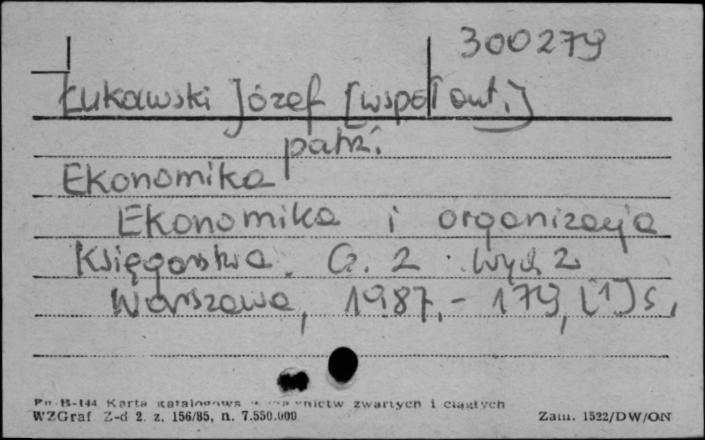 300279
Łukawski Józef [współaut.]
patrz:
Ekonomika
Ekonomika i organizacja
Księgarstwa. Cz. 2. Wyd. 2
Warszawa, 1987. - 179, [1] s.
Pu-B-144 Karta katalogowa wydawnictw zwartych i ciągłych
WZGraf. Z-d 2. z. 156/85, n. 7.550.000 Zam. 1522/DW/ON